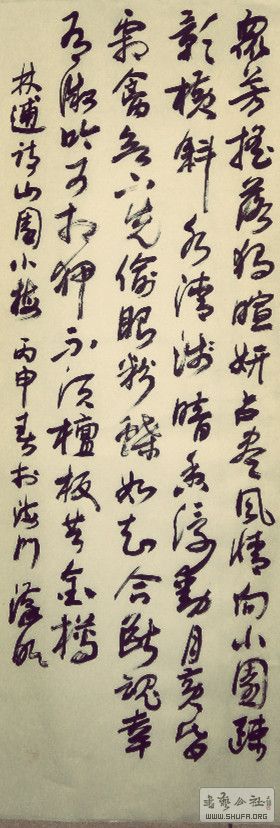 眾芳搖落獨暄妍占盡風情向小園疎
影橫斜水清淺暗香浮動月黃昏
霜禽欲下先偷眼粉蝶如知合斷魂幸
有微吟可相狎不須檀板共金樽
林逋詩山園小梅 丙申春於海門
書藝公社
WWW.SHUFA.ORG